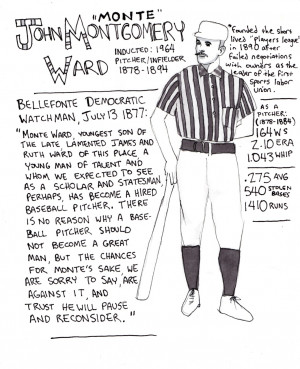 "MONTE"
JOHN MONTGOMERY
WARD
INDUCTED: 1964
PITCHER/INFIELDER
1878-1894
*Founded the short
lived "Players league"
in 1890 after
failed negotiations
with owners as the
leader of the first
sports labor
union.
BELLEFONTE DEMOCRATIC
WATCHMAN, JULY 13 1877:
"MONTE WARD, YOUNGEST SON OF
THE LATE LAMENTED JAMES AND
RUTH WARD OF THIS PLACE, A
YOUNG MAN OF TALENT AND
WHOM WE EXPECTED TO SEE
AS A SCHOLAR AND STATESMAN,
PERHAPS, HAS BECOME A HIRED
BASEBALL PITCHER. THERE
IS NO REASON WHY A BASE-
BALL PITCHER SHOULD
NOT BECOME A GREAT
MAN, BUT THE CHANCES
FOR MONTE'S SAKE, WE
ARE SORRY TO SAY, ARE
AGAINST IT, AND
TRUST HE WILL PAUSE
AND RECONSIDER."
AS A
PITCHER:
(1878-1884)
164 WS
2.10 ERA
1.043 WHIP
.275 AVG
540 STOLEN
BASES
1410 RUNS